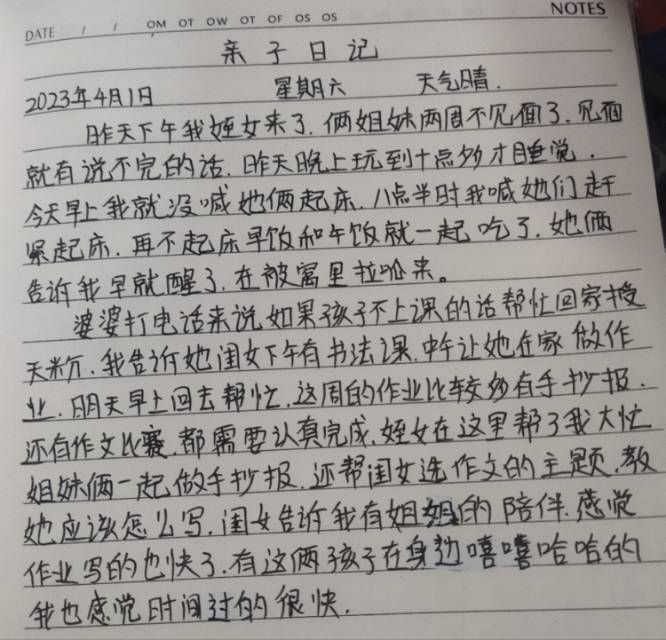 DATE / / OM OT OW OT OF OS OS NOTES
亲子日记
2023年4月1日 星期六 天气晴.
昨天下午我姪女来了.俩姐妹两周不见面了.见面
就有说不完的话.昨天晚上玩到十点多才睡觉.
今天早上我就没喊她俩起床.八点半时我喊她们赶
紧起床.再不起床早饭和午饭就一起吃了.她俩
告诉我早就醒了.在被窝里拉呱来。
婆婆打电话来说如果孩子不上课的话帮忙回家授
天粉.我告诉她闺女下午有书法课.中午让她在家做作
业.明天早上回去帮忙.这周的作业比较多有手抄报.
还有作文比赛.都需要认真完成.姪女在这里帮了我大忙
姐妹俩一起做手抄报.还帮闺女选作文的主题.教
她应该怎么写.闺女告诉我有姐姐的陪伴.感觉
作业写的也快了.有这俩孩子在身边嘻嘻哈哈的
我也感觉时间过的很快.